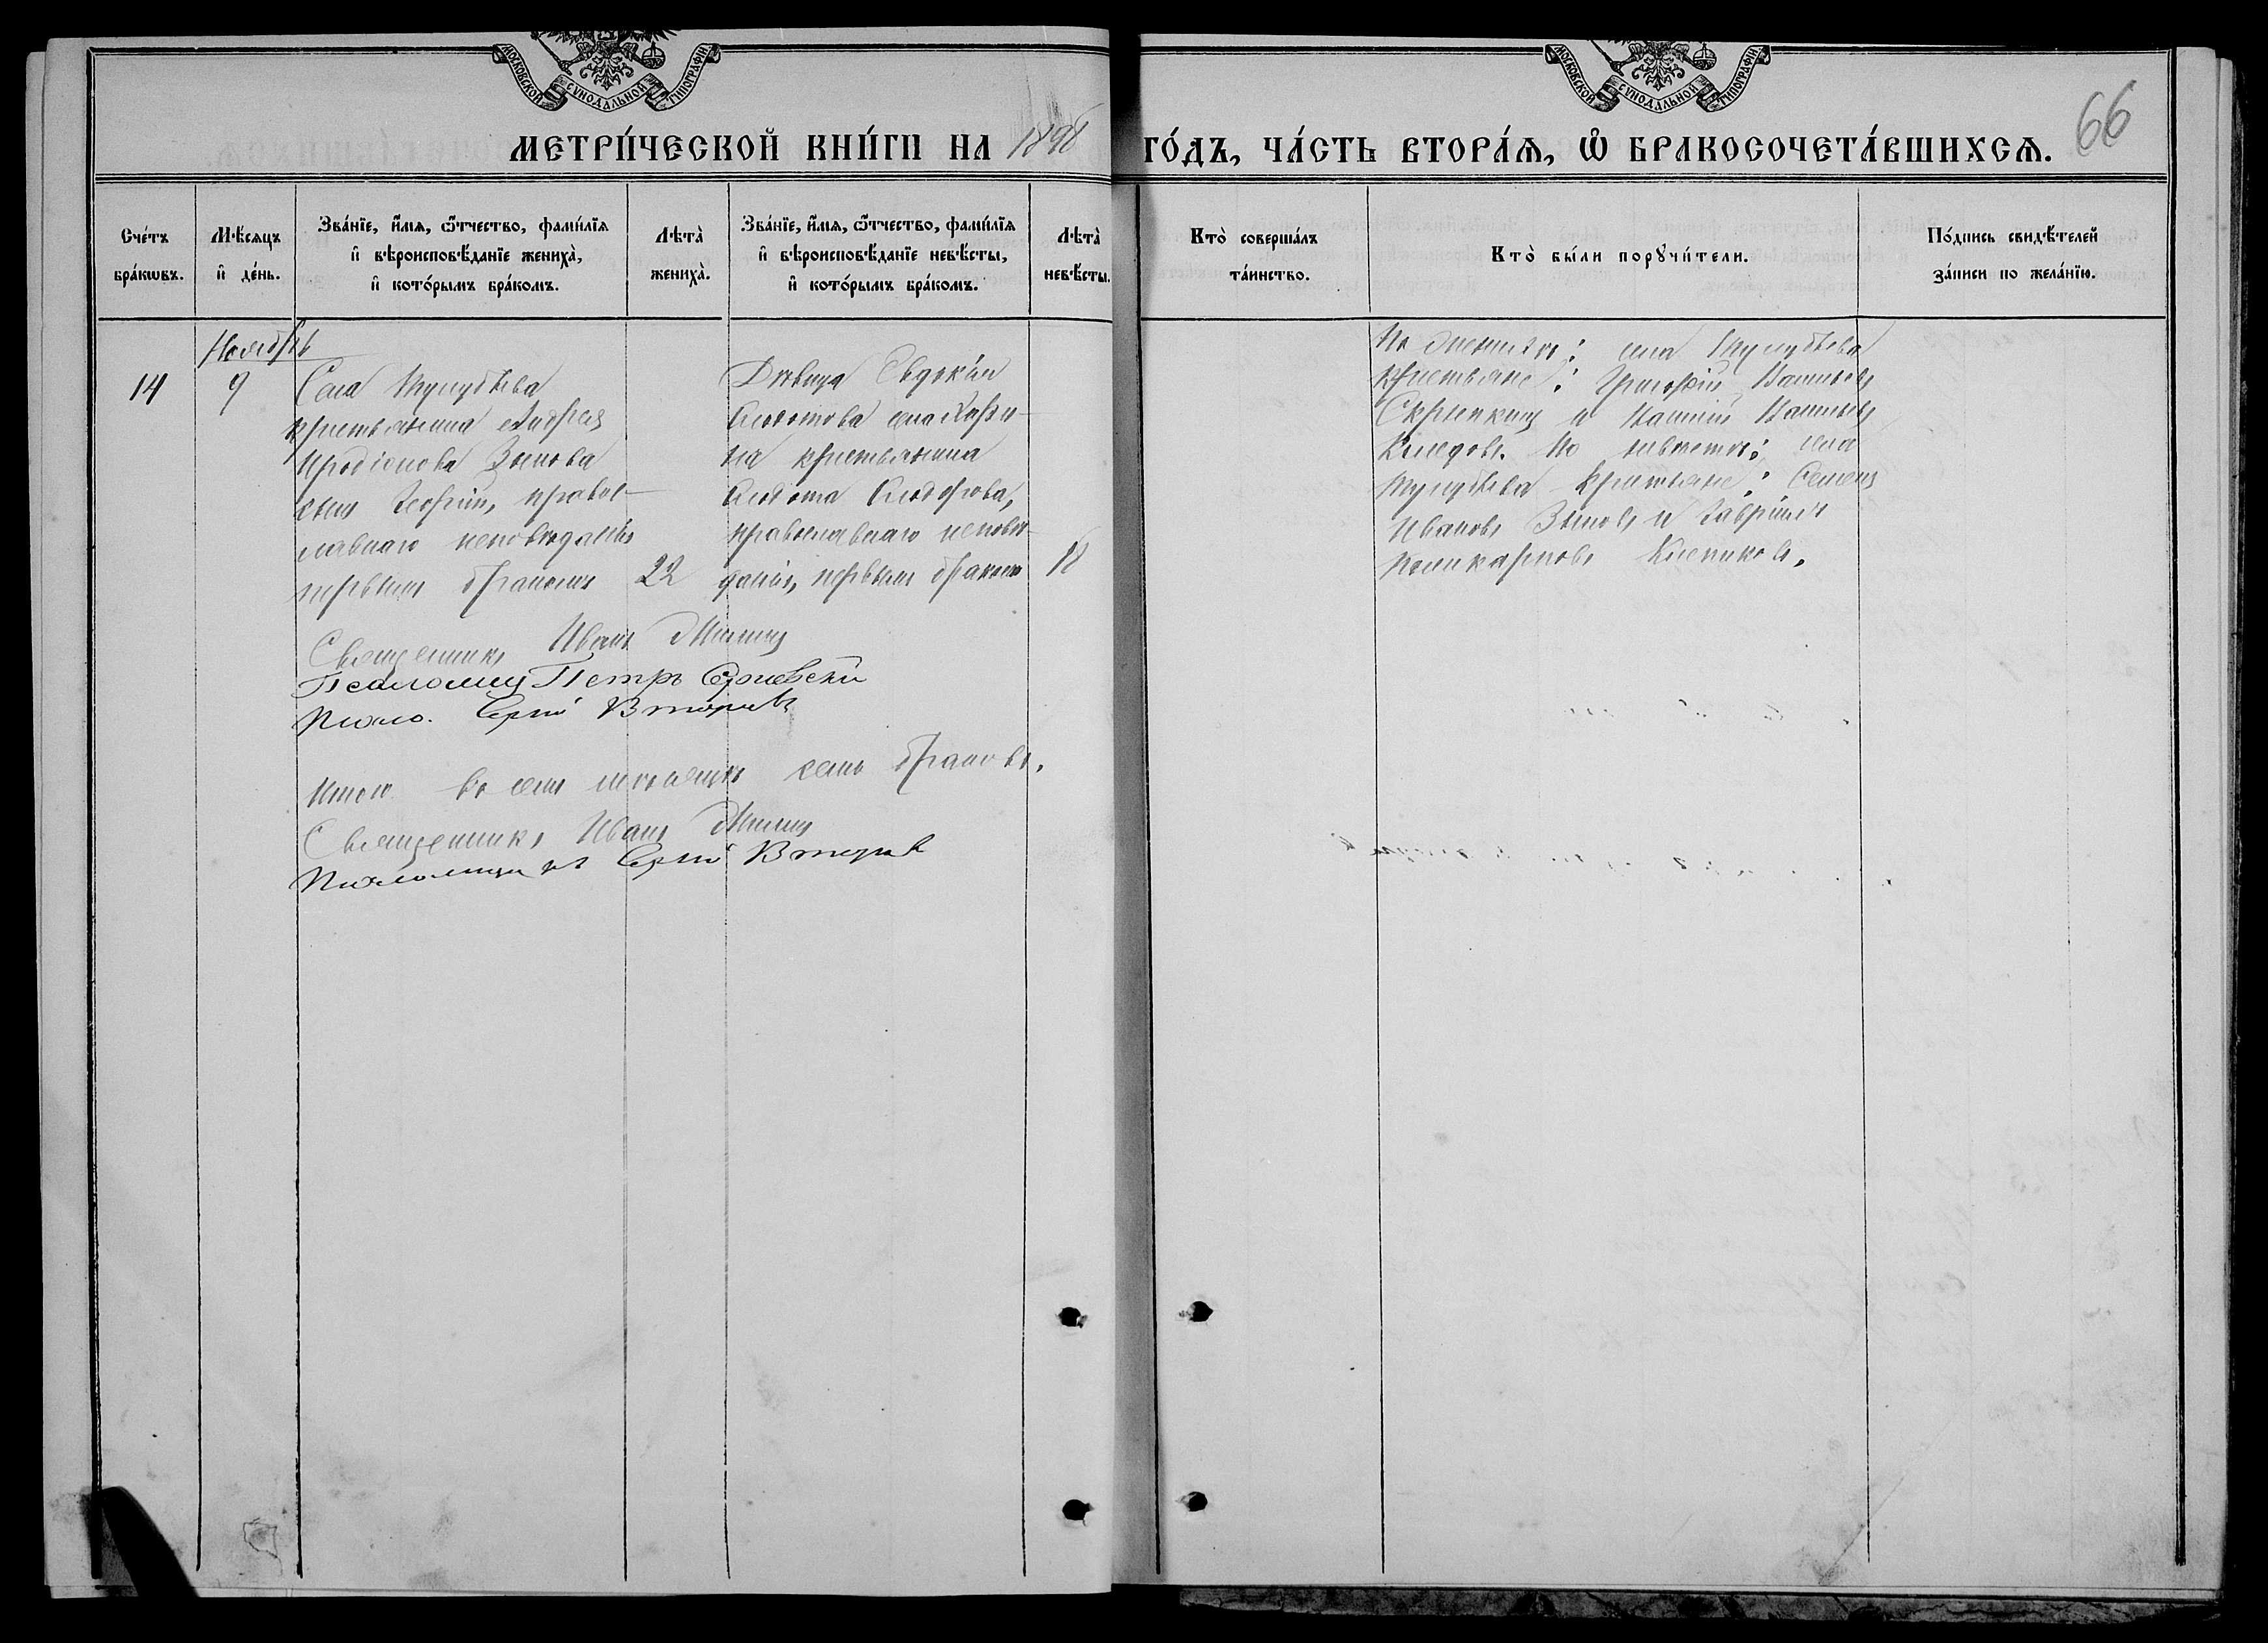 МОСКОВСКОЙ СУНОДАЛЬНОЙ ТИПОГРАФІИ
МОСКОВСКОЙ СУНОДАЛЬНОЙ ТИПОГРАФІИ
66
МЕТРИ́ЧЕСКОЙ КНИ́ГИ НА 1898 ГО́ДЪ, ЧА́СТЬ ВТОРА́Ѧ, Ѡ БРАКОСОЧЕТА́ВШИХСѦ.
Сче́тъ бра́кѡвъ.
Мѣ́сяцъ и де́нь.
Зва́нїе, и́мя, ѻ́тчество, фами́лїя и вѣроисповѣ́данїе жениха̀, и кото́рымъ бра́комъ.
Лѣта̀ жениха̀.
Зва́нїе, и́мя, ѻ́тчество, фами́лїя и вѣроисповѣ́данїе невѣ́сты, и кото́рымъ бра́комъ.
Лѣта̀ невѣ́сты.
Кто̀ соверша́лъ та́инство.
Кто̀ бы́ли порꙋчи́тели.
По́дпись свидѣ́телей за́писи по жела́нїю.
Ноябрь
14
9
Села
крестьянина Андрея
Иродіонова Зимова
сынъ Георгій, правос-
лавнаго исповѣданія
первымъ бракомъ
22
Дѣвица Евдокія
Ѳедотова села
на крестьянина
Ѳедота Ѳедорова,
православнаго исповѣ-
данія, первымъ бракомъ
18
По женихѣ: села
крестьяне: Григорій Васильевъ
Скрипкинъ и Василій Васильевъ
По невѣстѣ: села
крестьяне: Семенъ
Ивановъ Зимовъ и Гавріилъ
Поликарповъ
Священникъ Иванъ
Псаломщ Петръ
Псало. Сергій Второвъ
Итого въ семъ мѣсяцѣ семь браковъ.
Священникъ Иванъ
Псаломщикъ Сергій Второвъ